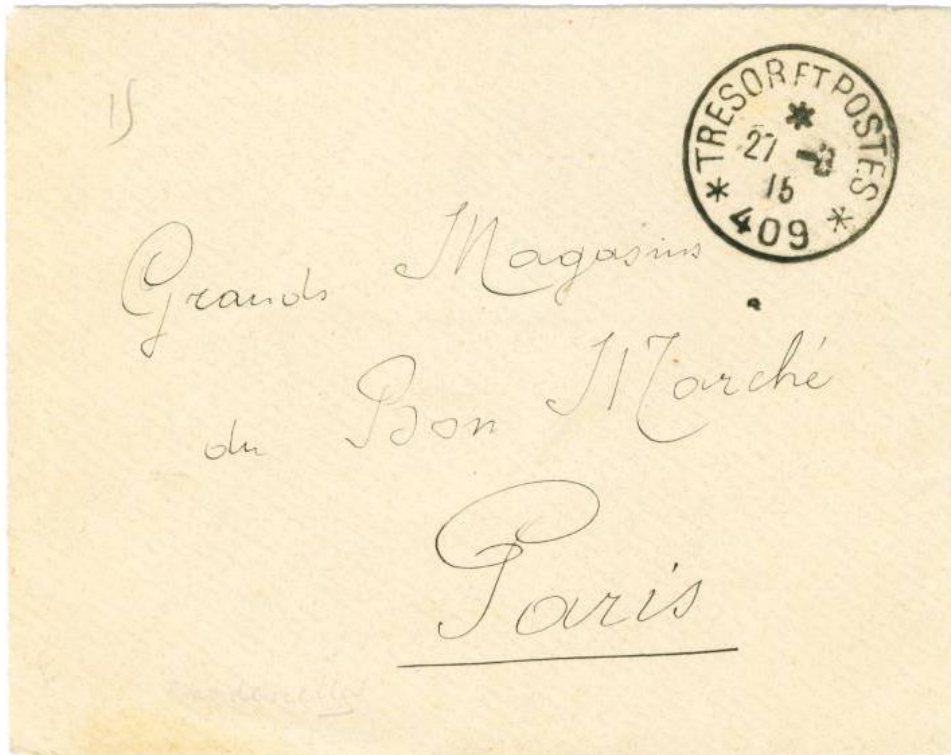 15
TRESOR ET POSTES
27
15
409
Grands Magasins
du Bon Marché
Paris